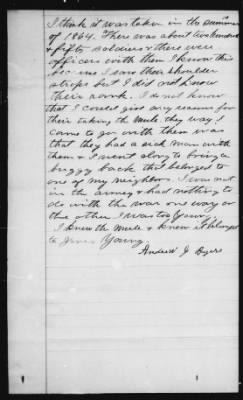 I think it was taken in the summer
of 1864. There was about two hundred
& fifty soldiers & there were
officers with them I know this
because I saw their shoulder
straps but I did not know
their rank. I do not know
that I could give any reasons for
their taking the mule, they way I
came to go with them was
that they had a sick man with
them & I went along to bring a
buggy back that belonged to
one of my neighbors. I was not
in the army & had nothing to
do with the war one way or
the other I was too young,
I knew the mule & knew it belonged
to Young.
Andrew J Byers